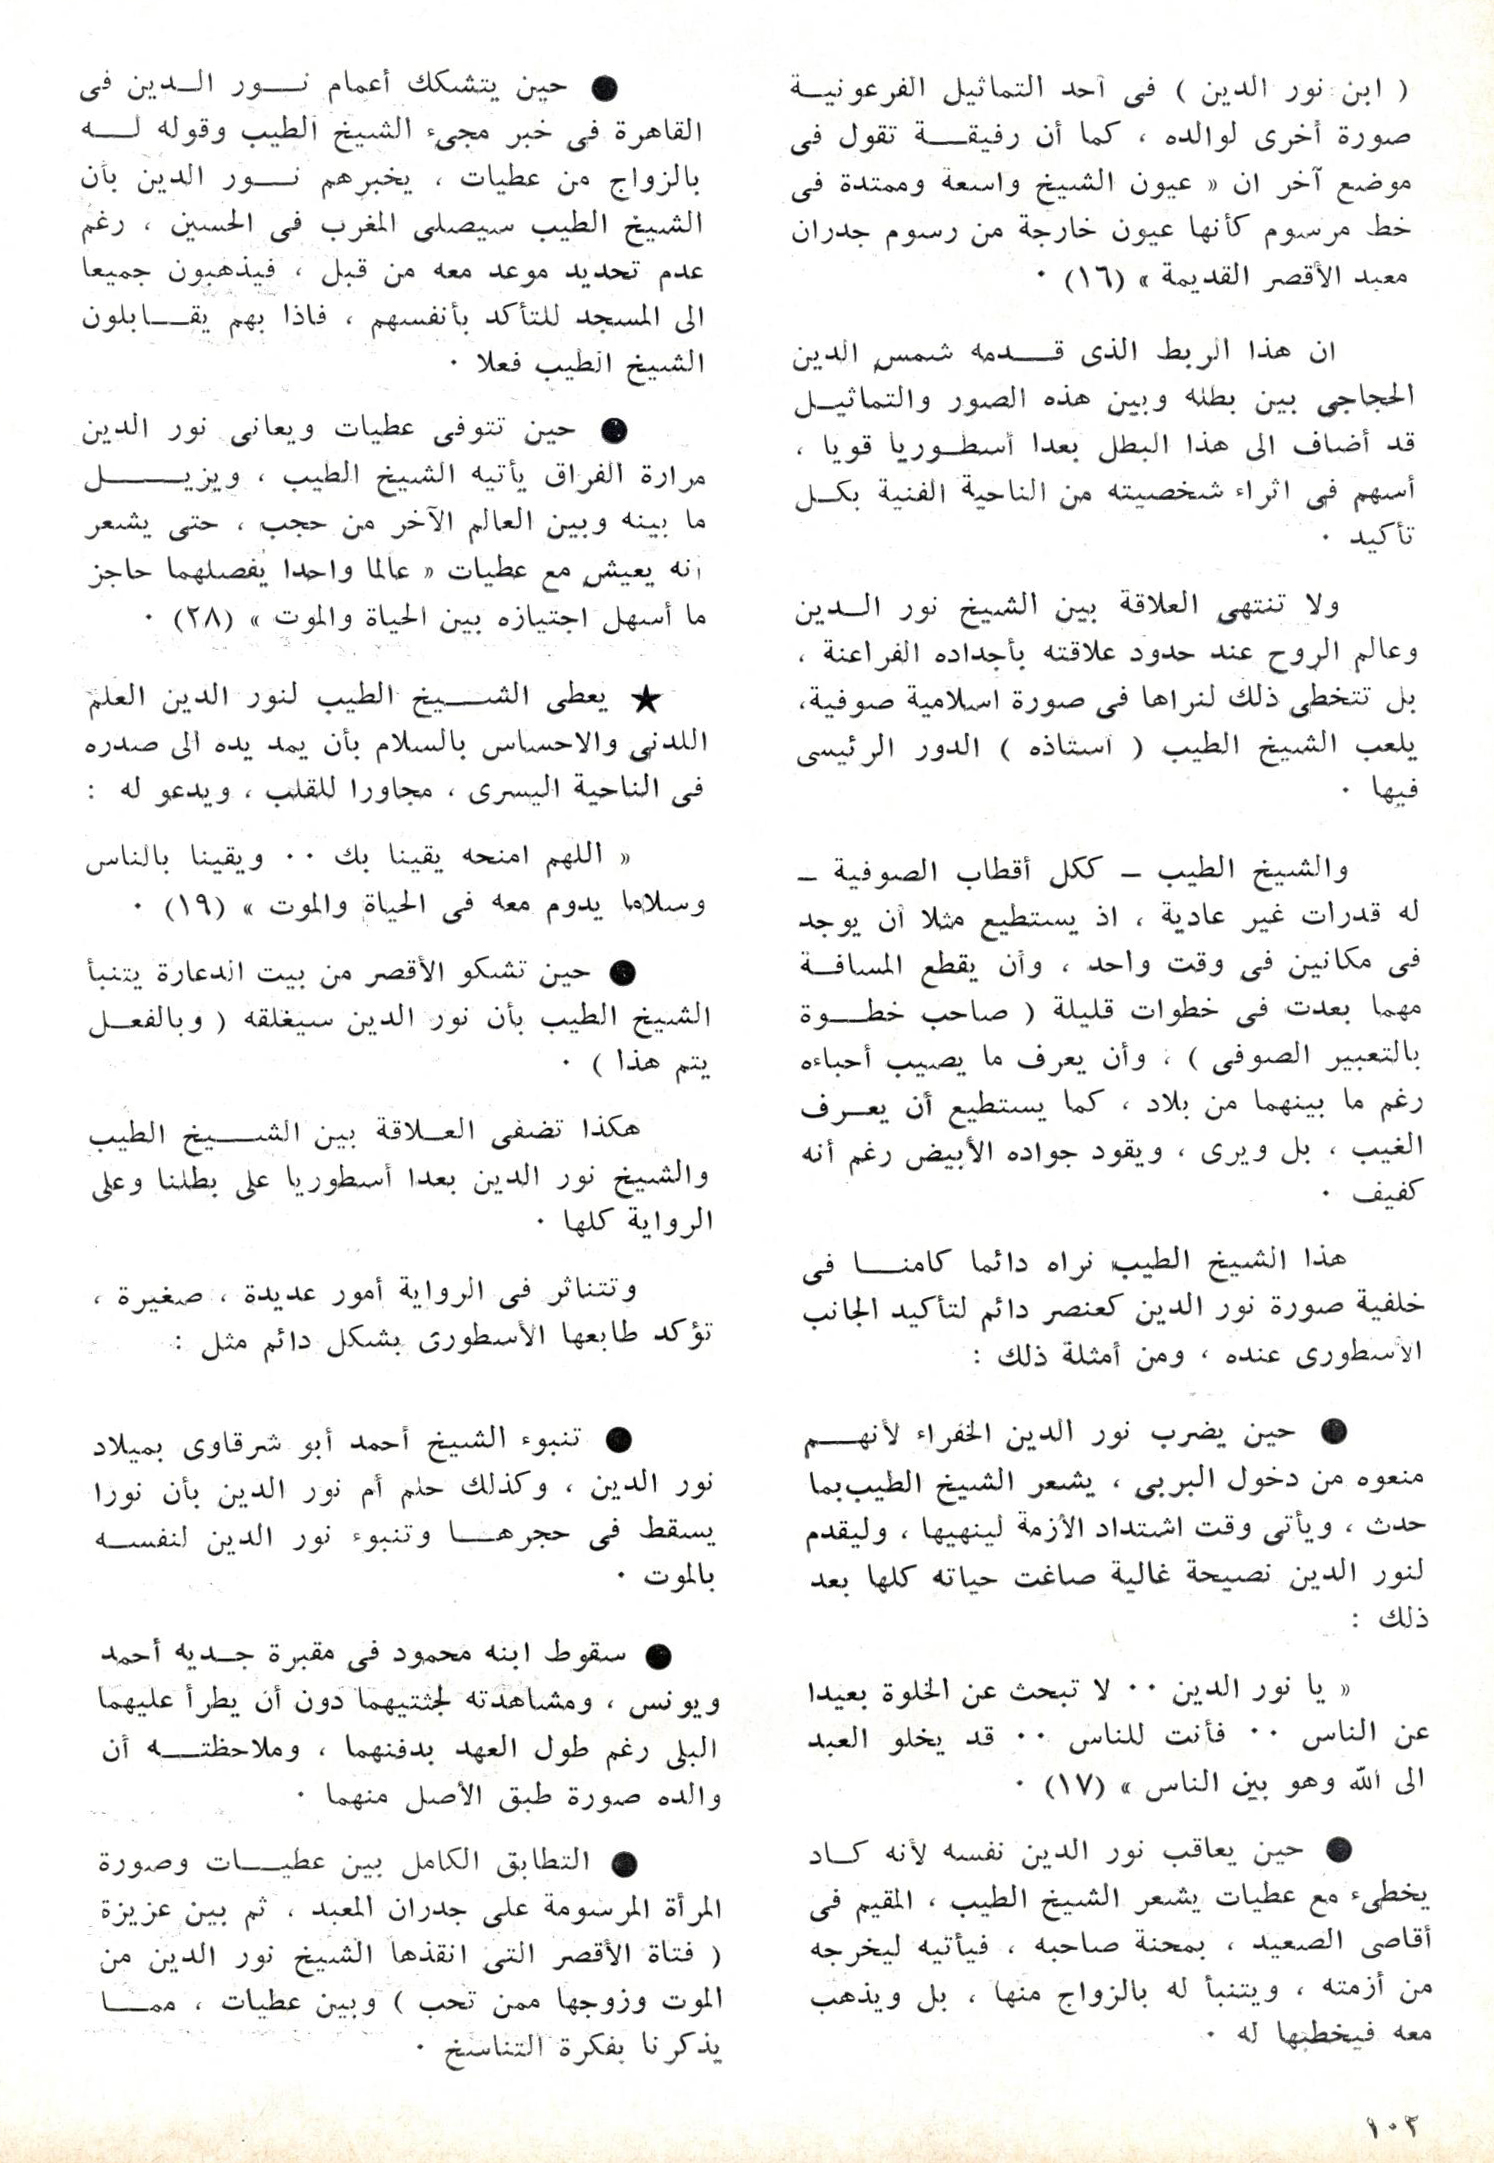 ( ابن نور الدين ) فى أحد التماثيل الفرعونية
صورة أخرى لوالده ، كما أن رفيقة تقول فى
موضع آخر ان « عيون الشيخ واسعة وممتدة فى
خط مرسوم كأنها عيون خارجة من رسوم جدران
معبد الأقصر القديمة » (١٦) ٠
ان هذا الربط الذى قدمه شمس الدين
الحجاجى بين بطله وبين هذه الصور والتماثيل
قد أضاف الى هذا البطل بعدا أسطوريا قويا ،
أسهم فى اثراء شخصيته من الناحية الفنية بكل
تأكيد ٠
ولا تنتهى العلاقة بين الشيخ نور الدين
وعالم الروح عند حدود علاقته بأجداده الفراعنة ،
بل تتخطى ذلك لنراها فى صورة اسلامية صوفية،
يلعب الشيخ الطيب ( أستاذه ) الدور الرئيسى
فيها ٠
والشيخ الطيب – ككل أقطاب الصوفية –
له قدرات غير عادية ، اذ يستطيع مثلا أن يوجد
فى مكانين فى وقت واحد ، وأن يقطع المسافة
مهما بعدت فى خطوات قليلة ( صاحب خطوة
بالتعبير الصوفى ) ، وأن يعرف ما يصيب أحباءه
رغم ما بينهما من بلاد ، كما يستطيع أن يعرف
الغيب ، بل ويرى ، ويقود جواده الأبيض رغم أنه
كفيف ٠
هذا الشيخ الطيب نراه دائما كامنا فى
خلفية صورة نور الدين كعنصر دائم لتأكيد الجانب
الأسطورى عنده ، ومن أمثلة ذلك :
● حين يضرب نور الدين الخفراء لأنهم
منعوه من دخول البربى ، يشعر الشيخ الطيب بما
حدث ، ويأتى وقت اشتداد الأزمة لينهيها ، وليقدم
لنور الدين نصيحة غالية صاغت حياته كلها بعد
ذلك :
« يا نور الدين ٠٠ لا تبحث عن الخلوة بعيدا
عن الناس ٠٠ فأنت للناس ٠٠ قد يخلو العبد
الى الله وهو بين الناس » (١٧) ٠
● حين يعاقب نور الدين نفسه لأنه كاد
يخطىء مع عطيات يشعر الشيخ الطيب ، المقيم فى
أقاصى الصعيد ، بمحنة صاحبه ، فيأتيه ليخرجه
من أزمته ، ويتنبأ له بالزواج منها ، بل ويذهب
معه فيخطبها له ٠
● حين يتشكك أعمام نور الدين فى
القاهرة فى خبر مجىء الشيخ الطيب وقوله له
بالزواج من عطيات ، يخبرهم نور الدين بأن
الشيخ الطيب سيصلى المغرب فى الحسين ، رغم
عدم تحديد موعد معه من قبل ، فيذهبون جميعا
الى المسجد للتأكد بأنفسهم ، فاذا بهم يقابلون
الشيخ الطيب فعلا ٠
● حين تتوفى عطيات ويعانى نور الدين
مرارة الفراق يأتيه الشيخ الطيب ، ويزيل
ما بينه وبين العالم الآخر من حجب ، حتى يشعر
أنه يعيش مع عطيات « عالما واحدا يفصلهما حاجز
ما أسهل اجتيازه بين الحياة والموت » (٢٨) ٠
★ يعطى الشيخ الطيب لنور الدين العلم
اللدنى والاحساس بالسلام بأن يمد يده الى صدره
فى الناحية اليسرى ، مجاورا للقلب ، ويدعو له :
« اللهم امنحه يقينا بك ٠٠ ويقينا بالناس
وسلاما يدوم معه فى الحياة والموت » (١٩) ٠
● حين تشكو الأقصر من بيت الدعارة يتنبأ
الشيخ الطيب بأن نور الدين سيغلقه ( وبالفعل
يتم هذا ) ٠
هكذا تضفى العلاقة بين الشيخ الطيب
والشيخ نور الدين بعدا أسطوريا على بطلنا وعلى
الرواية كلها ٠
وتتناثر فى الرواية أمور عديدة ، صغيرة ،
تؤكد طابعها الأسطورى بشكل دائم مثل :
● تنبوء الشيخ أحمد أبو شرقاوى بميلاد
نور الدين ، وكذلك حلم أم نور الدين بأن نورا
يسقط فى حجرها وتنبوء نور الدين لنفسه
بالموت ٠
● سقوط ابنه محمود فى مقبرة جديه أحمد
ويونس ، ومشاهدته لجثتيهما دون أن يطرأ عليهما
البلى رغم طول العهد بدفنهما ، وملاحظته أن
والده صورة طبق الأصل منهما ٠
● التطابق الكامل بين عطيات وصورة
المرأة المرسومة على جدران المعبد ، ثم بين عزيزة
( فتاة الأقصر التى انقذها الشيخ نور الدين من
الموت وزوجها ممن تحب ) وبين عطيات ، مما
يذكرنا بفكرة التناسخ ٠
١٠٣